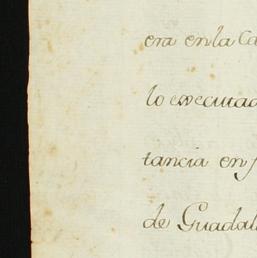 era en la Ca
lo executad
tancia en
de Guadal